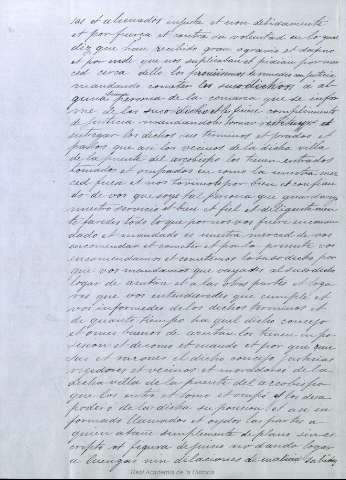 sas et alienados injusta et non debidamente
et por fuerza et contra su voluntad en lo qual
diz que han recibido gran agravio et daño
et por ende que nos suplicaban et pidian por mer
ced cerca dello les proveiesemos de remedio con justicia
mandando cometer los susodichos a al
guna persona de la comarca que se infor
me de lo susodicho et faga complimiento
de justicia mandandoles tornar et
entregar los dichos sus terminos et prados et
pastos que asi los vecinos de la dicha villa
de la puente del arzobispo les tienen entrados
tomados et ocupados en como la nuestra mer
ced fuese et nos tovimoslo por bien et confian
do de vos que soys tal persona que guardareis
nuestro servicio et bien et fiel et diligentemen
te faredes todo lo que por nos vos fuere encomen
dado et mandado es nuestra merced de vos
encomendar et cometer et por la presente vos
encomendamos et cometemos lo susodicho por
que vos mandamos que vayades al susodicho
logar de azutan et a las otras partes et loga
res que vos entendieredes que cumple et
vos informedes de los dichos terminos et
de quanto tiempo ha quel dicho concejo
et omes buenos de azutan los tienen in po
sesion et de como et cuando et por que cau
sas et razones el dicho concejo justicias
regidores et vecinos et moradores de la
dicha villa de la puente del arzobispo
gelos entro et tomo et ocupo et los desa
podero de la dicha su posesion et asi in
formado llamados et oydos las partes a
quien atañe simplemente de plano sin es
crepto et figura de juicio no dando logar
a luengas nin dilaciones de malicia
Real Academia de la Historia